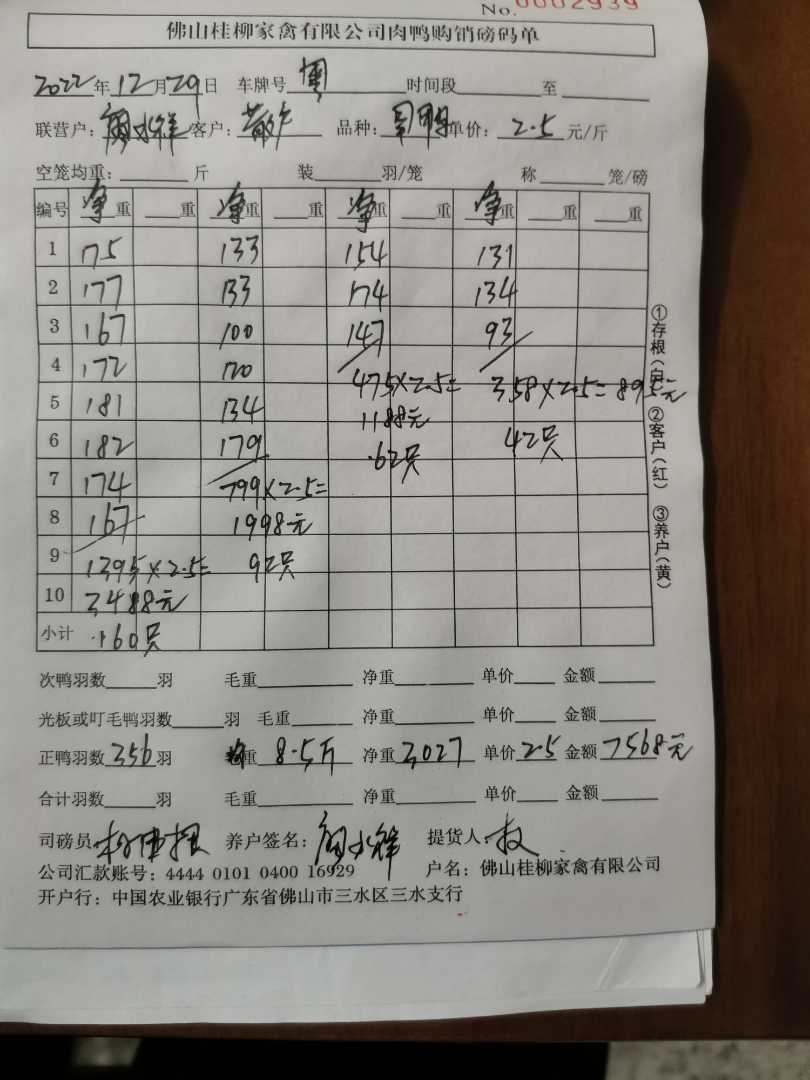 No. 0002939
佛山桂柳家禽有限公司肉鸭购销磅码单
2022年12月29日 车牌号 时间段 至
联营户： 水祥 客户：散户 品种： 单价：2.5元/斤
空笼均重： 斤 装 羽/笼 称 笼/磅
编号 净重 重 净重 重 净重 重 净重 重 重
1 175 133 154 131
2 177 133 174 134
3 167 100 147 93
4 172 120 475×2.5= 358×2.5=895元
5 181 134 1188元
6 182 179 62只 42只
7 174 799×2.5=
8 167 1998元
9 1395×2.5= 92只
10 3488元
小计 160只
①存根（白） ②客户（红） ③养户（黄）
次鸭羽数 羽 毛重 净重 单价 金额
光板或叮毛鸭羽数 羽 毛重 净重 单价 金额
正鸭羽数356羽 重8.5斤 净重3,027 单价2.5 金额7568元
合计羽数 羽 毛重 净重 单价 金额
司磅员： 养户签名： 水祥 提货人：
公司汇款账号：4444 0101 0400 16929 户名：佛山桂柳家禽有限公司
开户行：中国农业银行广东省佛山市三水区三水支行